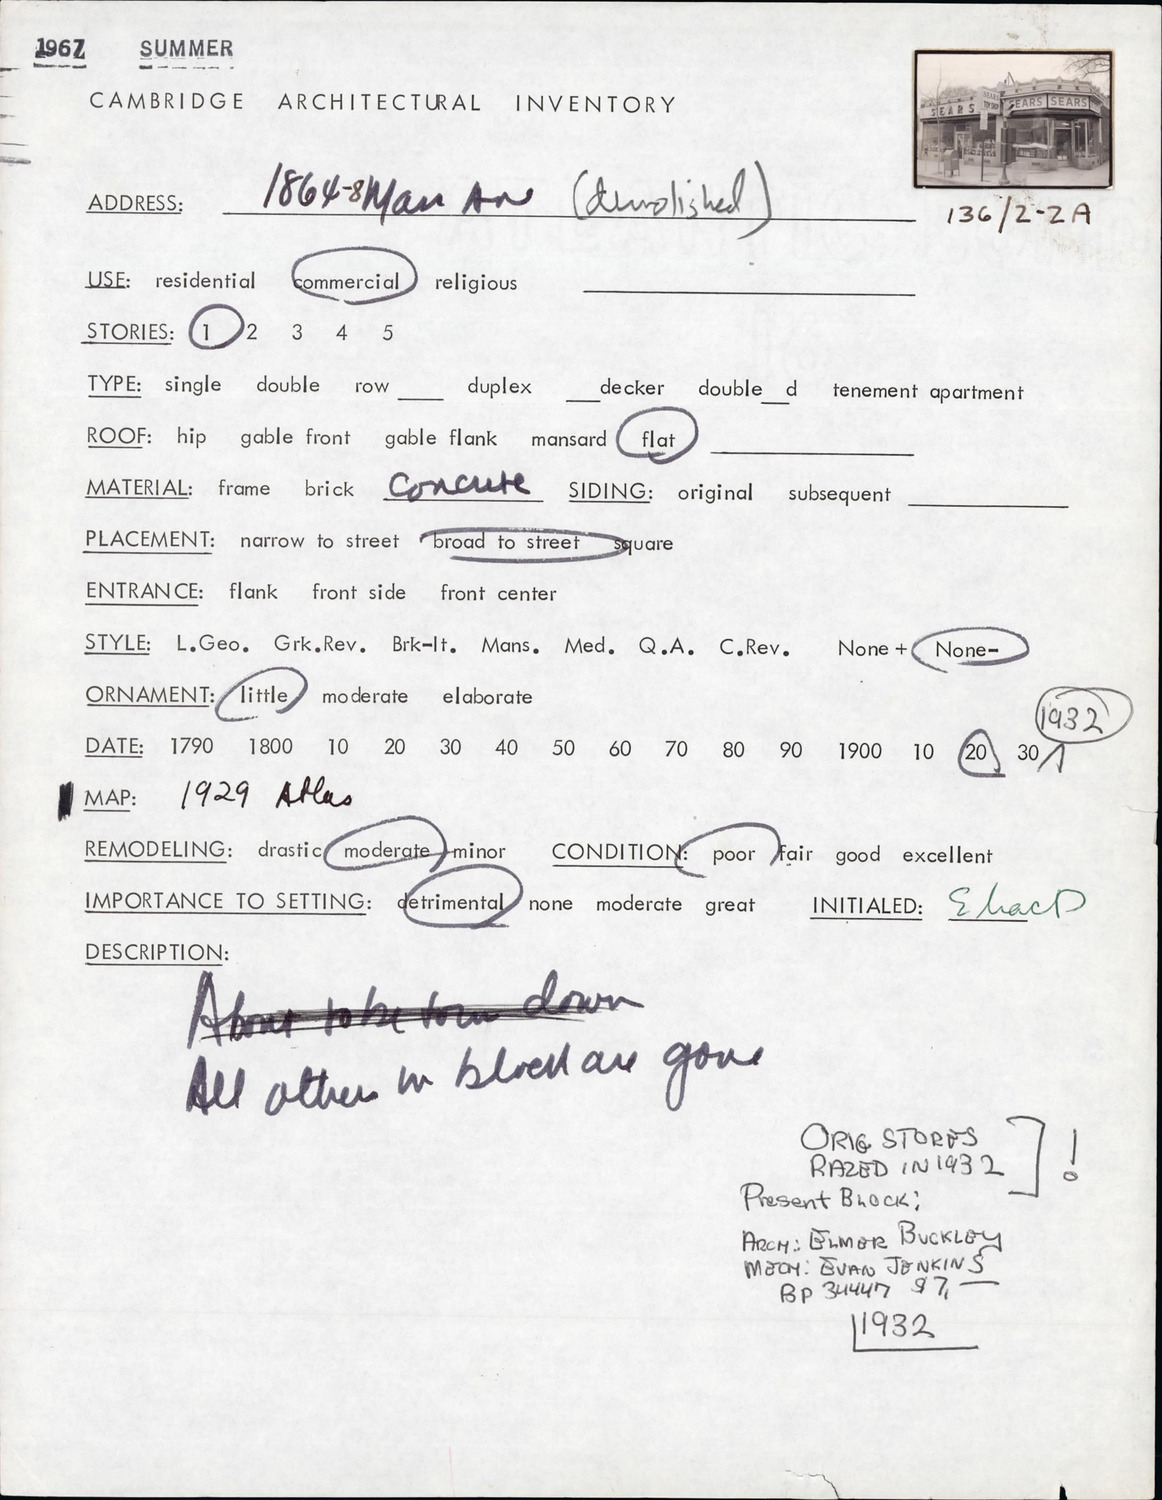 1967 SUMMER
CAMBRIDGE ARCHITECTURAL INVENTORY
SEARS SEARS SEARS
ADDRESS: 1864-8 Mass Ave (demolished)
136/2-2A
USE: residential commercial religious
STORIES: 1 2 3 4 5
TYPE: single double row ___ duplex ___decker double__d tenement apartment
ROOF: hip gable front gable flank mansard flat
MATERIAL: frame brick Concrete SIDING: original subsequent
PLACEMENT: narrow to street broad to street square
ENTRANCE: flank front side front center
STYLE: L.Geo. Grk.Rev. Brk-It. Mans. Med. Q.A. C.Rev. None + None-
ORNAMENT: little moderate elaborate
1932
DATE: 1790 1800 10 20 30 40 50 60 70 80 90 1900 10 20 30
MAP: 1929 Atlas
REMODELING: drastic moderate minor CONDITION: poor fair good excellent
IMPORTANCE TO SETTING: detrimental none moderate great INITIALED:
DESCRIPTION:
About to be torn down
All others in block are gone
ORIG STORES
RAZED IN 1932 ] !
Present Block:
ARCH: ELMER BUCKLEY
MECH: EVAN JENKINS
BP 34447 $7,—
1932